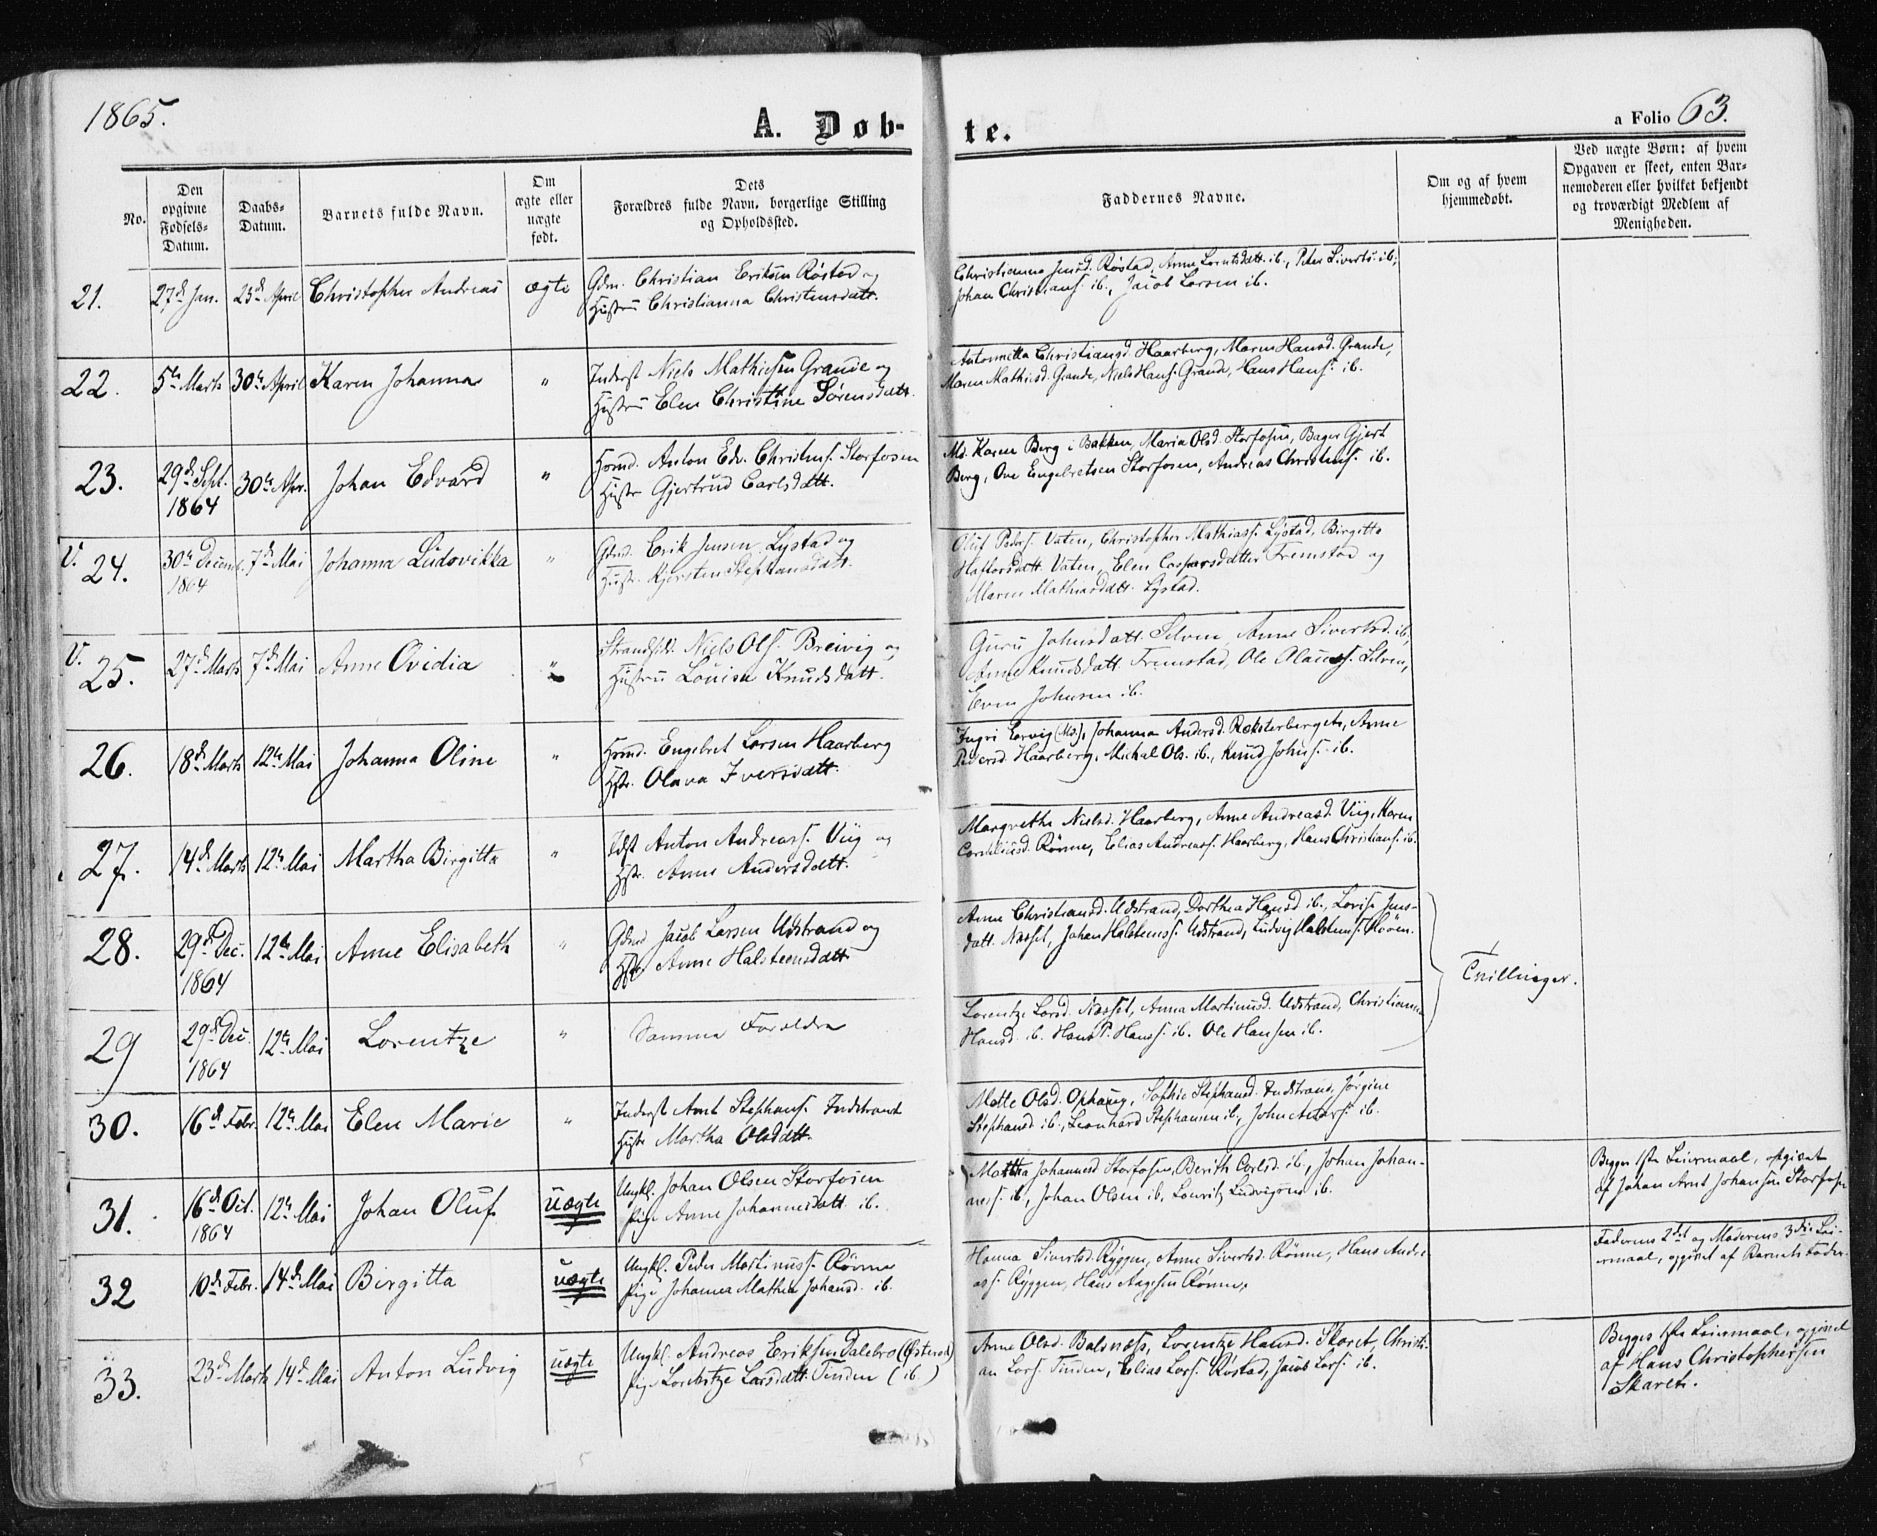 1865.
A. Døb-
te.
a Folio 63.
No.
Den opgivne Fødsels-Datum.
Daabs-Datum.
Barnets fulde Navn.
Om ægte eller uægte født.
Dets Forældres fulde Navn, borgerlige Stilling og Opholdssted.
Faddernes Navne.
Om og af hvem hjemmedøbt.
Ved uægte Børn: af hvem Opgaven er skeet, enten Barnemoderen eller hvilket bekjendt og troværdigt Medlem af Menigheden.
21. 27d Jan. 23d April Christopher Andreas ægte
Gdm. Christian Eriksen Røstad og
Hustru Christianna Christensdatt.
Christianna Jensd. Røstad, Anne Lorntsdatt. ib., Peter Siverts. ib.,
Johan Christians. ib., Jacob Larsen ib.
22. 5te Marts 30te April Karen Johanna "
Inderst Niels Mathiesen Grande og
Hustru Elen Christine Sørensdatt.
Antonnetta Christiansd. Haarberg, Maren Hansd. Grande,
Maren Mathiasd. Grande, Niels Hans. Grande, Hans Hans. ib.
23. 29de Sept. 1864 30te Apr. Johan Edvard "
Hmd. Anton Edv. Christens. Storfosen
Hustr. Gjertrud Carlsdatt.
Md. Karen Berg i Bakken, Maria Olsd. Storfosen, Bager Gjert
Berg, Ove Engebretsen Storfosen, Andreas Christens. ib.
V. 24. 30te Decemb. 1864 7de Mai Johanna Ludovikka "
Gdmd. Erik Jensen Lystad og
Hustr. Kjersten Stephansdatt.
Oluf Peders. Vaten, Christopher Mathiass. Lystad, Birgitte
Haftorsdatt. Vaten, Elen Caspersdatter Fremstad og
Maren Mathiasdatt. Lystad.
V. 25. 27de Marts 7de Mai Anne Ovidia "
Strandsid. Niels Ols. Breivig og
Hustru Lovisa Knudsdatt.
Guru Johnsdatt. Selven, Anne Sivertsd. ib.,
Anne Knudsdatt. Fremstad, Ole Olauss. Selven,
Even Johnsen ib.
26. 18de Marts 12te Mai Johanna Oline "
Hmd. Engebret Larsen Haarberg
Hstr. Olava Iversdatt.
Ingri Ervig (Md.), Johanna Andersd. Røksterberget, Anne
Pedersd. Haarberg, Michal Ols. ib., Knud Johns. ib.
27. 14de Marts 12te Mai Martha Birgitta "
Idst Anton Andreass. Viig og
Hstr. Anne Andersdatt.
Margrethe Nielsd. Haarberg, Anne Andreasd. Viig, Karen
Corneliusd. Rønne, Elias Andreass. Haarberg, Hans Christians. ib.
28. 29de Dec. 1864 12te Mai Anne Elisabeth "
Gdmd Jacob Larsen Udstrand og
Hstr Anne Halsteensdatt.
Anne Christiansd. Udstrand, Dorthea Hansd ib., Lovise Jens-
datt. Næsset, Johan Halstens. Udstrand, Ludvig Halstens. Røøen.
Tvillinger.
29 29de Dec. 1864 12te Mai Lorentze "
Samme Forældre
Lorentze Larsd. Næsset, Anna Martinusd. Udstrand, Christianna
Hansd. ib. Hans P. Hanss. ib. Ole Hansen ib.
30. 16de Febr. 12te Mai Elen Marie "
Inderst Arnt Stephans. Indstrand
Hustr Martha Olsdatt.
Mette Olsd. Ophaug, Sophie Stephansd Indstrand, Jørgine
Stephansd ib., Leonhard Stephansen ib., John Anders. ib.
31. 16de Oct. 1864 12te Mai Johan Oluf uægte
Ungkl. Johan Olsen Storfosen
Pige Anne Johannesdatt ib.
Martha Johannesd Storfosen, Berith Carlsd. ib., Johan Johan-
ness. ib, Johan Olsen ib, Louritz Ludvigsen ib.
Begges 1ste Leiermaal, opgivet
af Johan Arnt Johansen Storfosen
32 10de Febr. 14de Mai Birgitta uægte
Ungkl. Peder Martinuss. Rønne
Pige Johanna Mathea Johansd. ib.
Hanna Sivertsd. Ryggen, Anne Sivertsd. Rønne, Hans Andre-
ass. Ryggen, Hans Aagesen Rønne.
Faderens 2det og Moderens 3die Lei-
ermaal, opgivet af Barnets Fader.
33. 23de Marts 14de Mai Anton Ludvig uægte
Ungkl. Andreas Eriksen Dalebro (Østeraat)
Pige Lorentze Larsdatt. Tinden (ib)
Anne Olsd. Balsnæss, Lorentze Hansd. Skaret, Christi-
an Lars. Tinden, Elias Lars. Røstad, Jacob Lars. ib.
Begges 1ste Leiermaal, opgivet
af Hans Christophersen
Skaret.